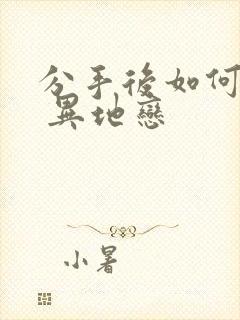 分手後如何
異地戀
小暑